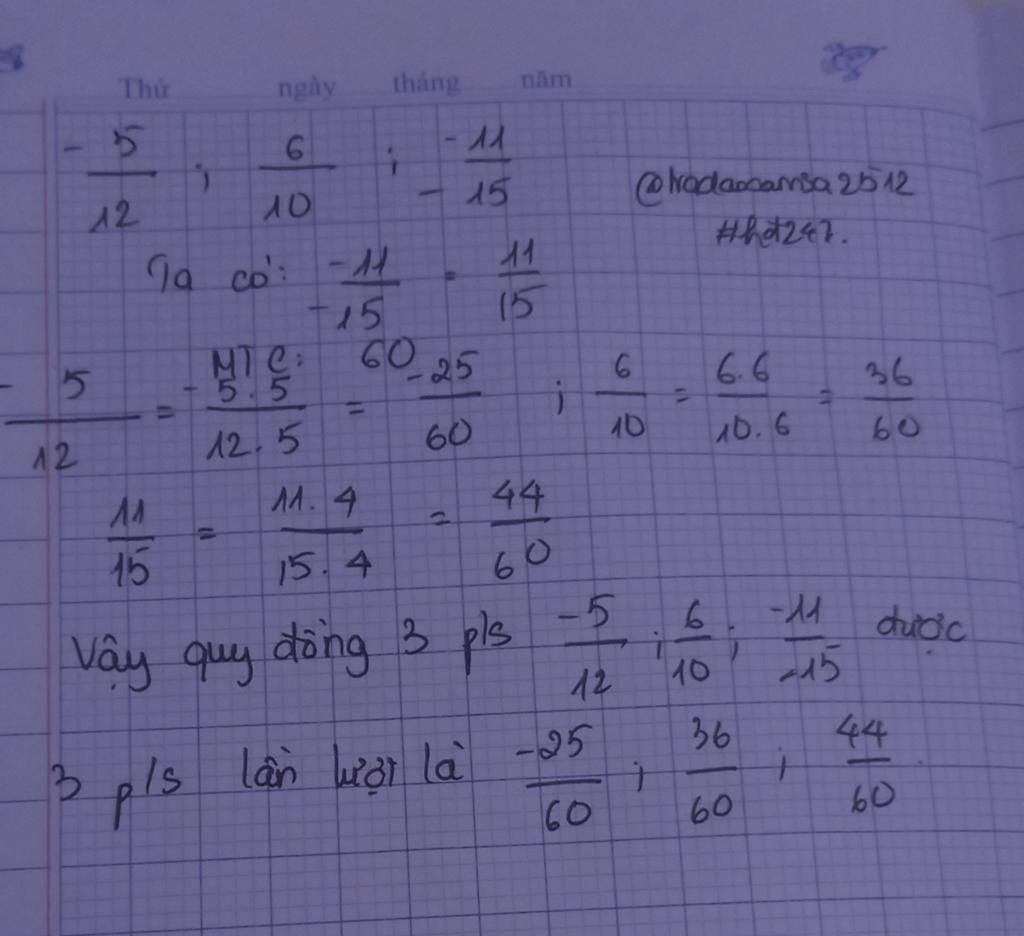 Thứ ngày tháng năm
-5/12 ; 6/10 ; -11/-15
#hdt247.
Ta có: -11/-15 = 11/15
MTC: 60
-5/12 = -5.5/12.5 = -25/60 ; 6/10 = 6.6/10.6 = 36/60
11/15 = 11.4/15.4 = 44/60
Vậy quy đồng 3 p/s -5/12 ; 6/10 ; -11/-15 được
3 p/s lần lượt là -25/60 ; 36/60 ; 44/60